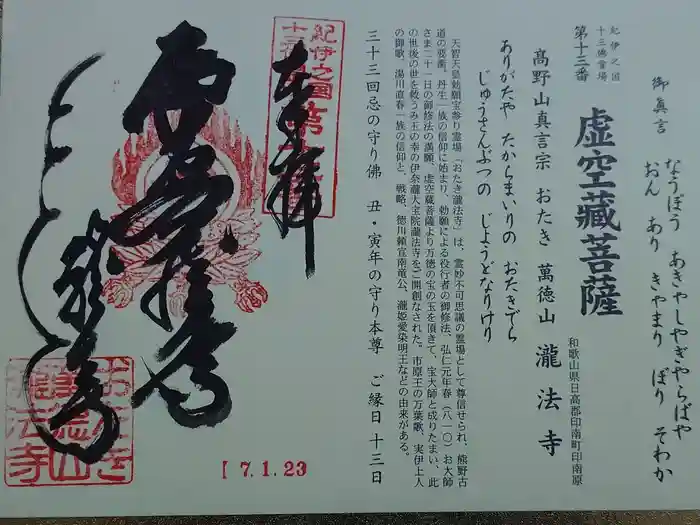 御真言
なうぼう あきゃしやぎやらばや
おん あり きやまり ぼり そわか
紀伊之国
十三佛霊場
第十三番
虚空藏菩薩
和歌山県日高郡印南町印南原
高野山真言宗 おたき 萬徳山 瀧法寺
ありがたや たからまいりの おたきでら
じゅうさんぶつの じようどなりけり
天智天皇勅願宝参り霊場「おたき瀧法寺」は、霊妙不可思議の霊場として尊信せられ、熊野古
道の要衝。丹生一族の信仰に始まり、勅願による役行者の御修法、弘仁元年春(八一〇)お大師
さま二十一日の御修法の満願、虚空蔵菩薩より万徳の宝の玉を頂きて、宝大師と成りたまい、此
の世後の世を救うみ玉の幸の伊奈瀧大宝院瀧法寺をご開創なされた。市原王の万葉歌、実伊上人
の御歌、湯川直春一族の信仰と、戦略、徳川頼宣南竜公、瀧姫愛染明王などの由来がある。
三十三回忌の守り佛 丑・寅年の守り本尊 ご縁日 十三日
奉拝
紀伊之国
十三
第十三
瀧法寺
7.1.23